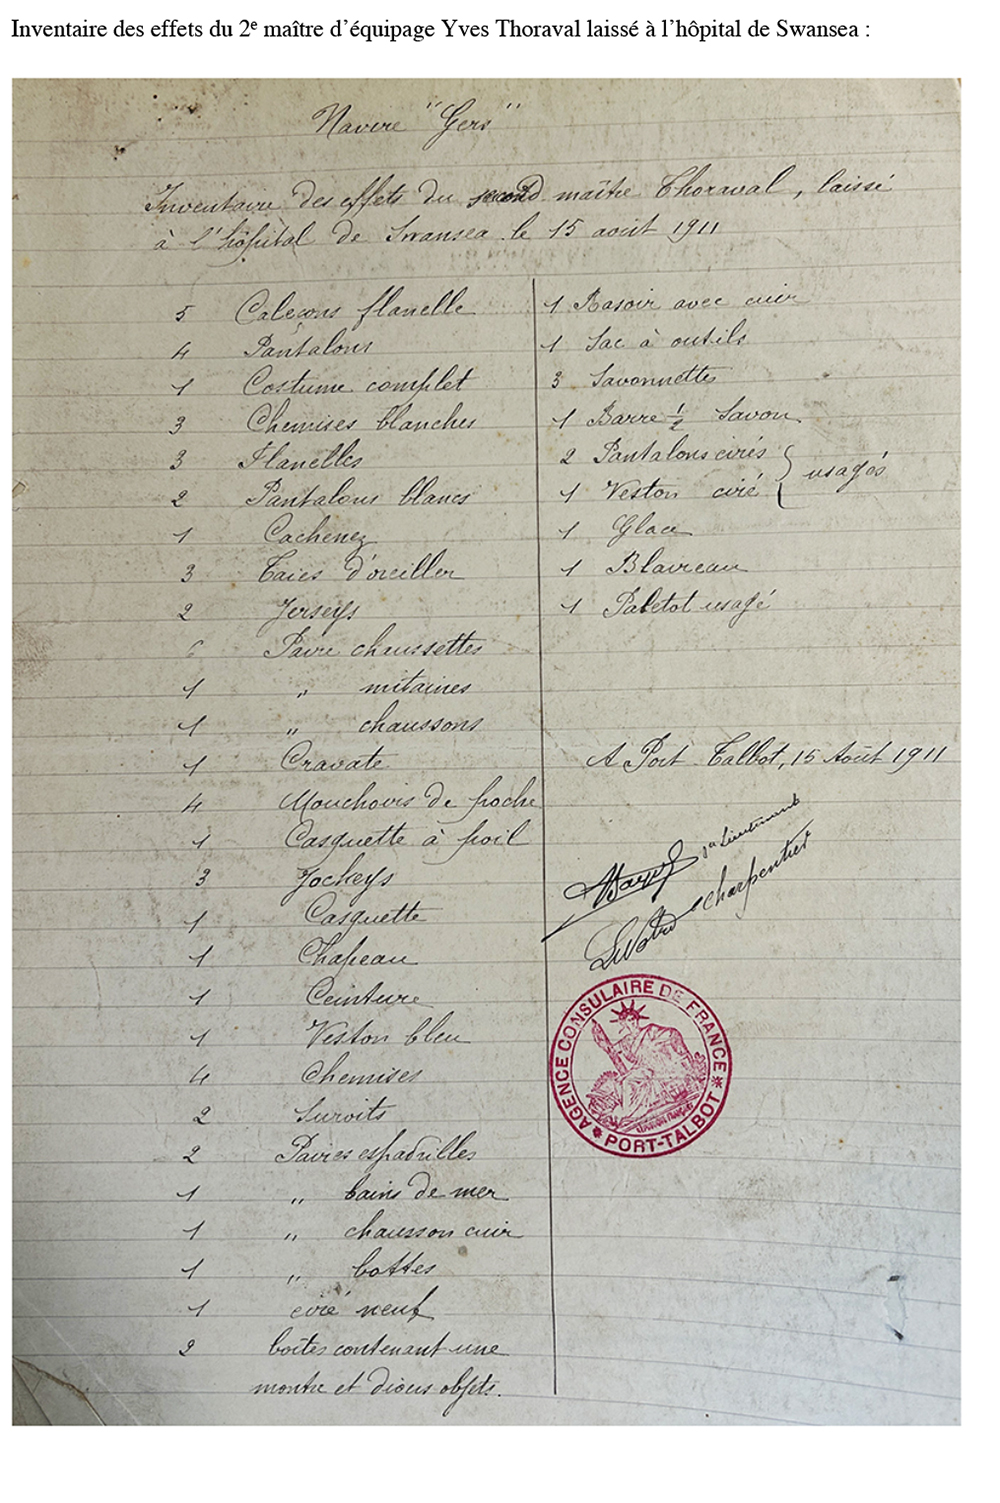 Inventaire des effets du 2e maître d'équipage Yves Thoraval laissé à l'hôpital de Swansea :
Navire "Gers"
Inventaire des effets du second maître Thoraval, laissé
à l'hôpital de Swansea le 15 août 1911
5 Caleçons flanelle
4 Pantalons
1 Costume complet
3 Chemises blanches
3 Flanelles
2 Pantalons blancs
1 Cachenez
3 Taies d'oreiller
2 Jerseys
6 Paire chaussettes
1 " mitaines
1 " chaussons
1 Cravate
4 Mouchoirs de poche
1 Casquette à poil
3 Jockeys
1 Casquette
1 Chapeau
1 Ceinture
1 Veston bleu
4 Chemises
2 Suroits
2 Paires espadrilles
1 " bains de mer
1 " chausson cuir
1 " bottes
1 ciré neuf
2 boîtes contenant une
montre et divers objets.
1 Rasoir avec cuir
1 Sac à outils
3 Savonnettes
1 Barre 1/2 Savon
2 Pantalons cirés
usagés
1 Veston ciré
1 Glace
1 Blaireau
1 Paletot usagé
A Port Talbot, 15 Août 1911
Lieutenant
charpentier
AGENCE CONSULAIRE DE FRANCE
* PORT-TALBOT *